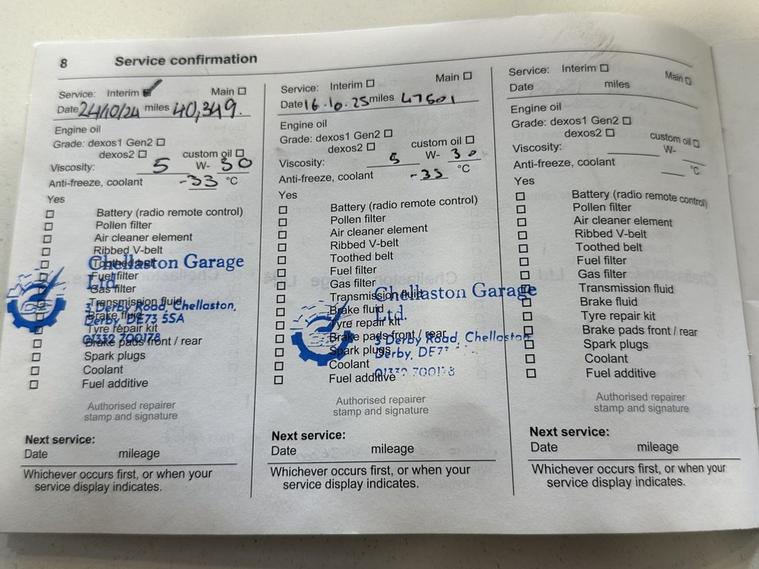 8 Service confirmation
Service: Interim Main
Date 24/10/24 miles 40,349.
Engine oil
Grade: dexos1 Gen2
dexos2 custom oil
Viscosity: 5 W- 30
Anti-freeze, coolant -33 °C
Yes
Battery (radio remote control)
Pollen filter
Air cleaner element
Ribbed V-belt
Toothed belt
Fuel filter
Gas filter
Transmission fluid
Brake fluid
Tyre repair kit
Brake pads front / rear
Spark plugs
Coolant
Fuel additive
Chellaston Garage
Ltd.
3 Derby Road, Chellaston,
Derby, DE73 5SA
01332 700178
Authorised repairer
stamp and signature
Next service:
Date mileage
Whichever occurs first, or when your
service display indicates.
Service: Interim Main
Date 16.10.25 miles 47501
Engine oil
Grade: dexos1 Gen2
dexos2 custom oil
Viscosity: 5 W- 30
Anti-freeze, coolant -33 °C
Yes
Battery (radio remote control)
Pollen filter
Air cleaner element
Ribbed V-belt
Toothed belt
Fuel filter
Gas filter
Transmission fluid
Brake fluid
Tyre repair kit
Brake pads front / rear
Spark plugs
Coolant
Fuel additive
Chellaston Garage
Ltd.
3 Derby Road, Chellaston
Derby, DE7
Authorised repairer
stamp and signature
Next service:
Date mileage
Whichever occurs first, or when your
service display indicates.
Service: Interim Main
Date miles
Engine oil
Grade: dexos1 Gen2
dexos2 custom oil
Viscosity: W-
Anti-freeze, coolant °C
Yes
Battery (radio remote control)
Pollen filter
Air cleaner element
Ribbed V-belt
Toothed belt
Fuel filter
Gas filter
Transmission fluid
Brake fluid
Tyre repair kit
Brake pads front / rear
Spark plugs
Coolant
Fuel additive
Authorised repairer
stamp and signature
Next service:
Date mileage
Whichever occurs first, or when your
service display indicates.